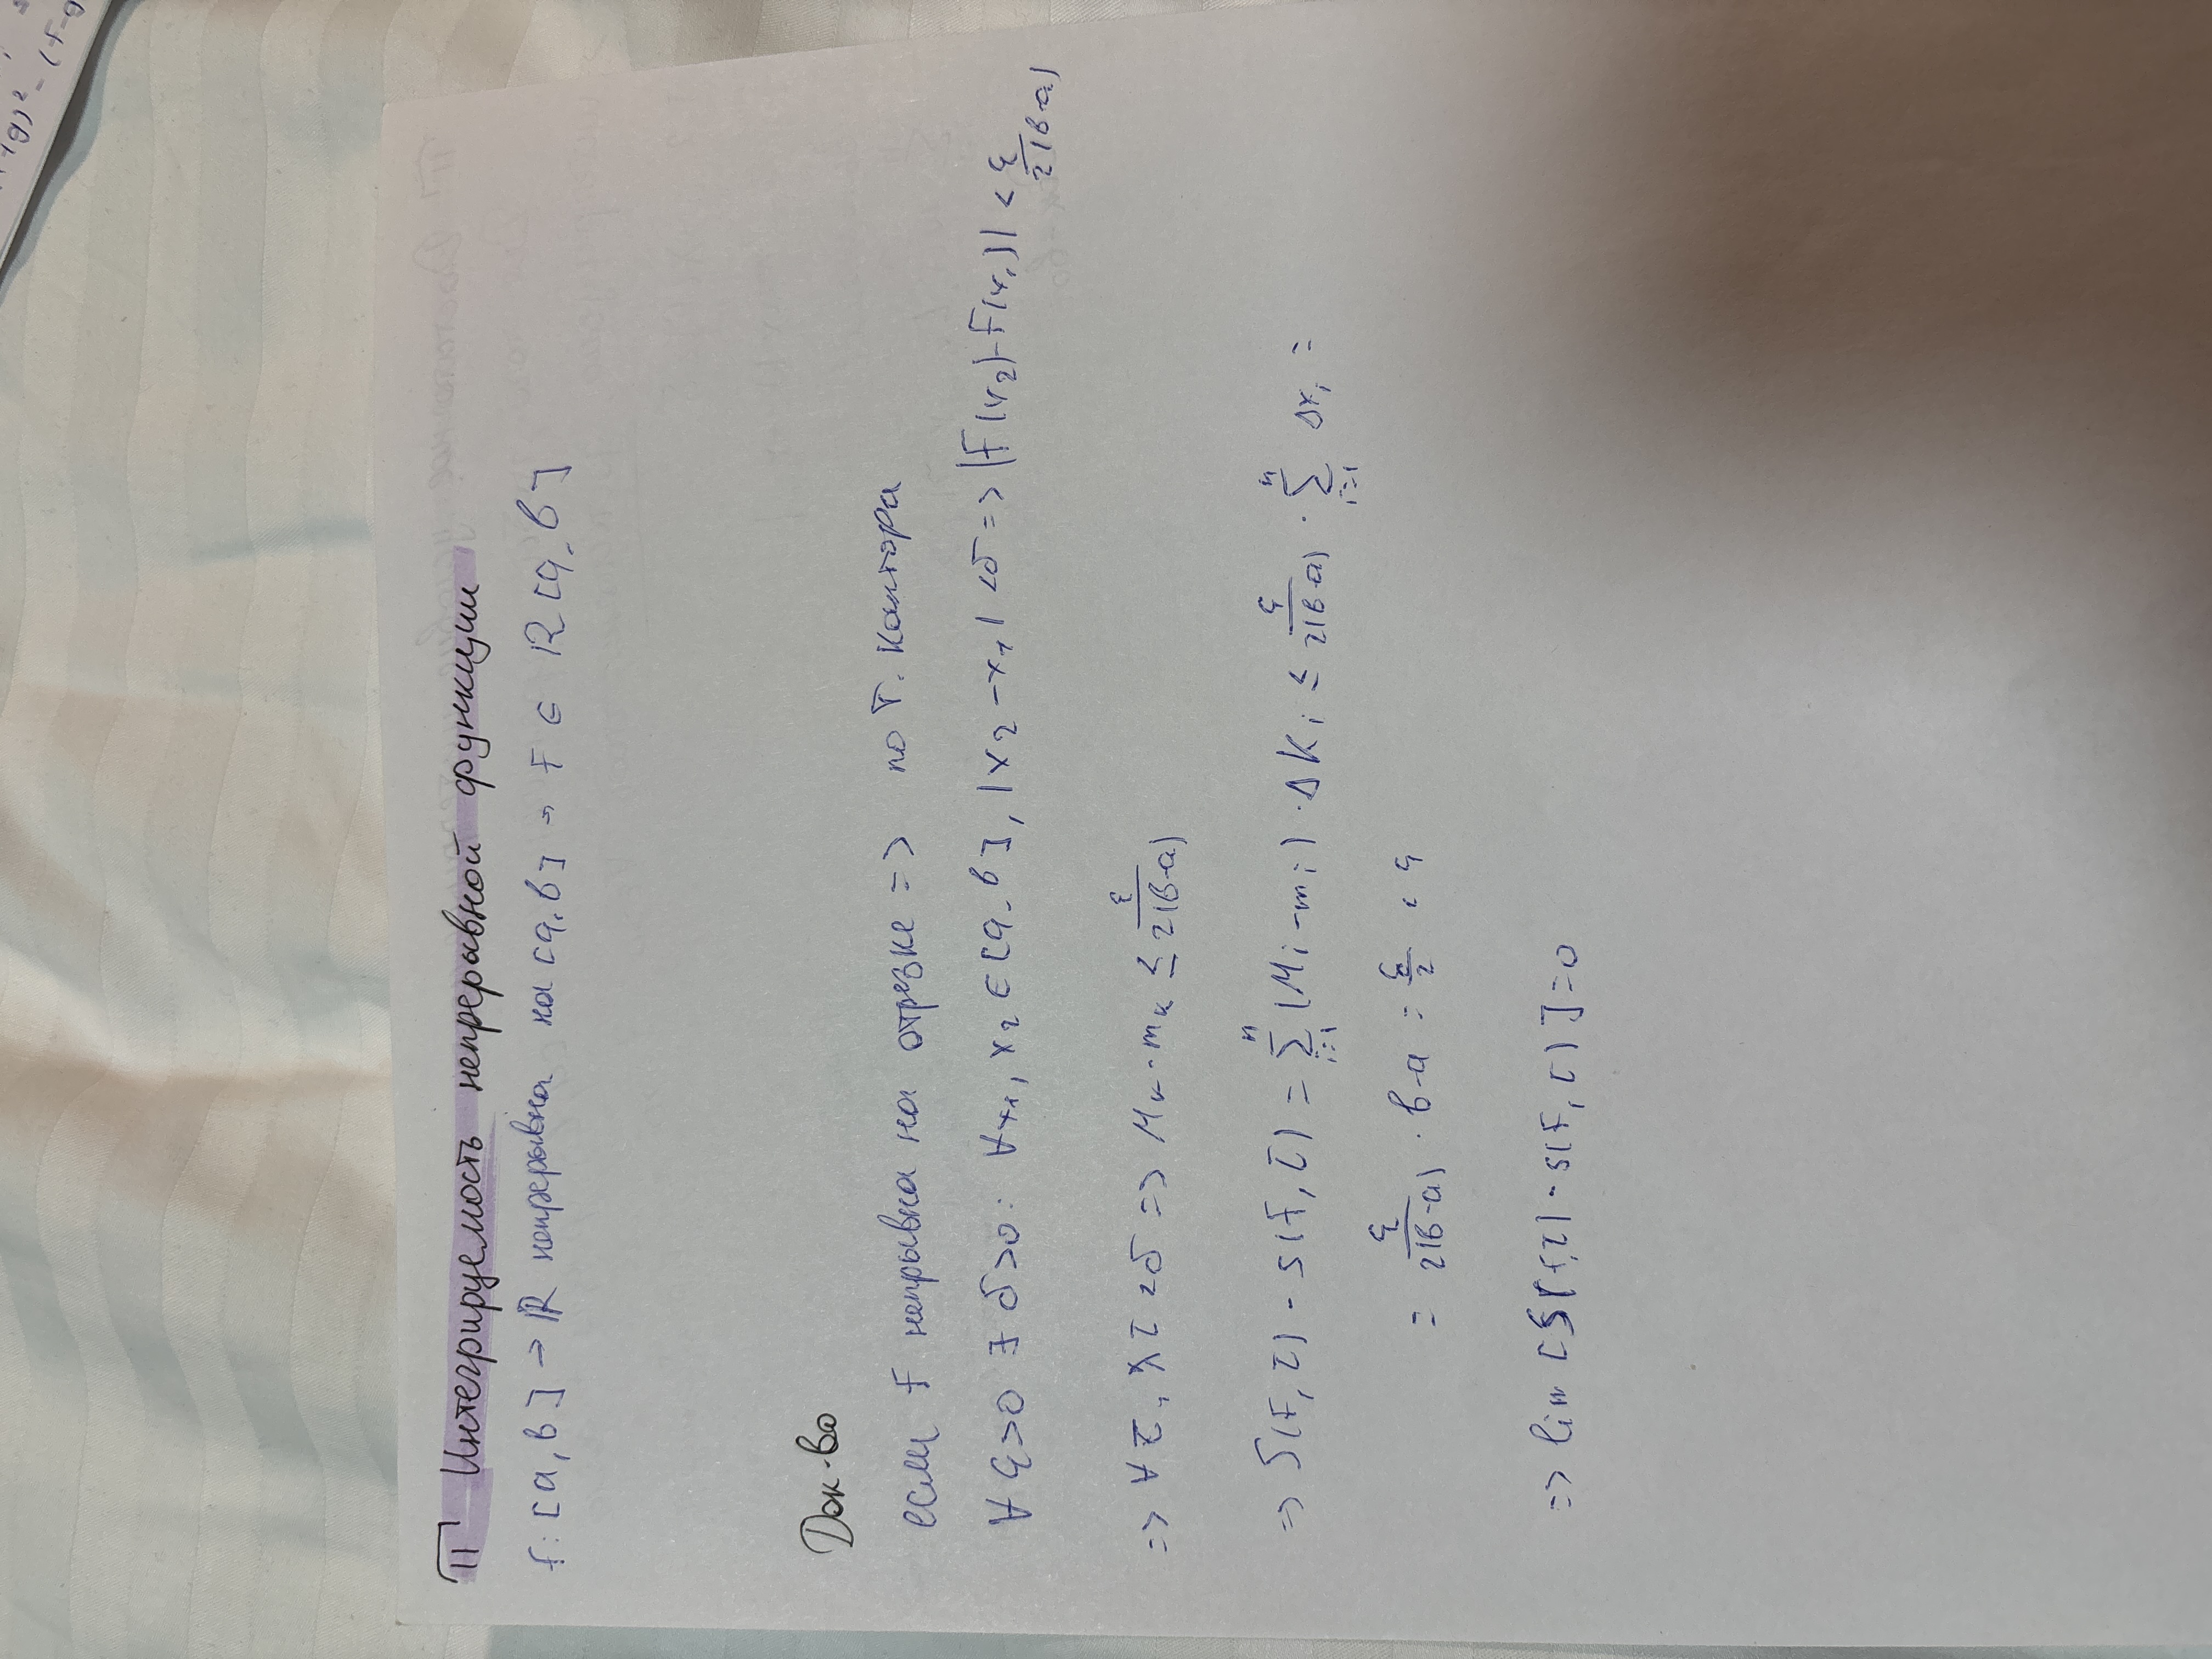 -g)² - (f-g
П Интегрируемость непрерывной функции
f: [a, b] → ℝ непрерывна на [a, b] → f ∈ R[a, b]
Док-во
если f непрывна на отрезке => по т. Кантора
∀ ε>0 ∃ δ>0: ∀x₁, x₂ ∈ [a, b], |x₂ - x₁| < δ => |f(x₂) - f(x₁)| < ε/2(b-a)
=> ∀ τ, λτ < δ => Mₖ - mₖ ≤ ε/2(b-a)
=> S(f, τ) - s(f, τ) = ∑ⁿᵢ₌₁ (Mᵢ - mᵢ) · Δxᵢ ≤ ε/2(b-a) · ∑ⁿᵢ₌₁ Δxᵢ =
= ε/2(b-a) · b-a = ε/2 < ε
=> lim [S(f, τ) - s(f, τ)] = 0